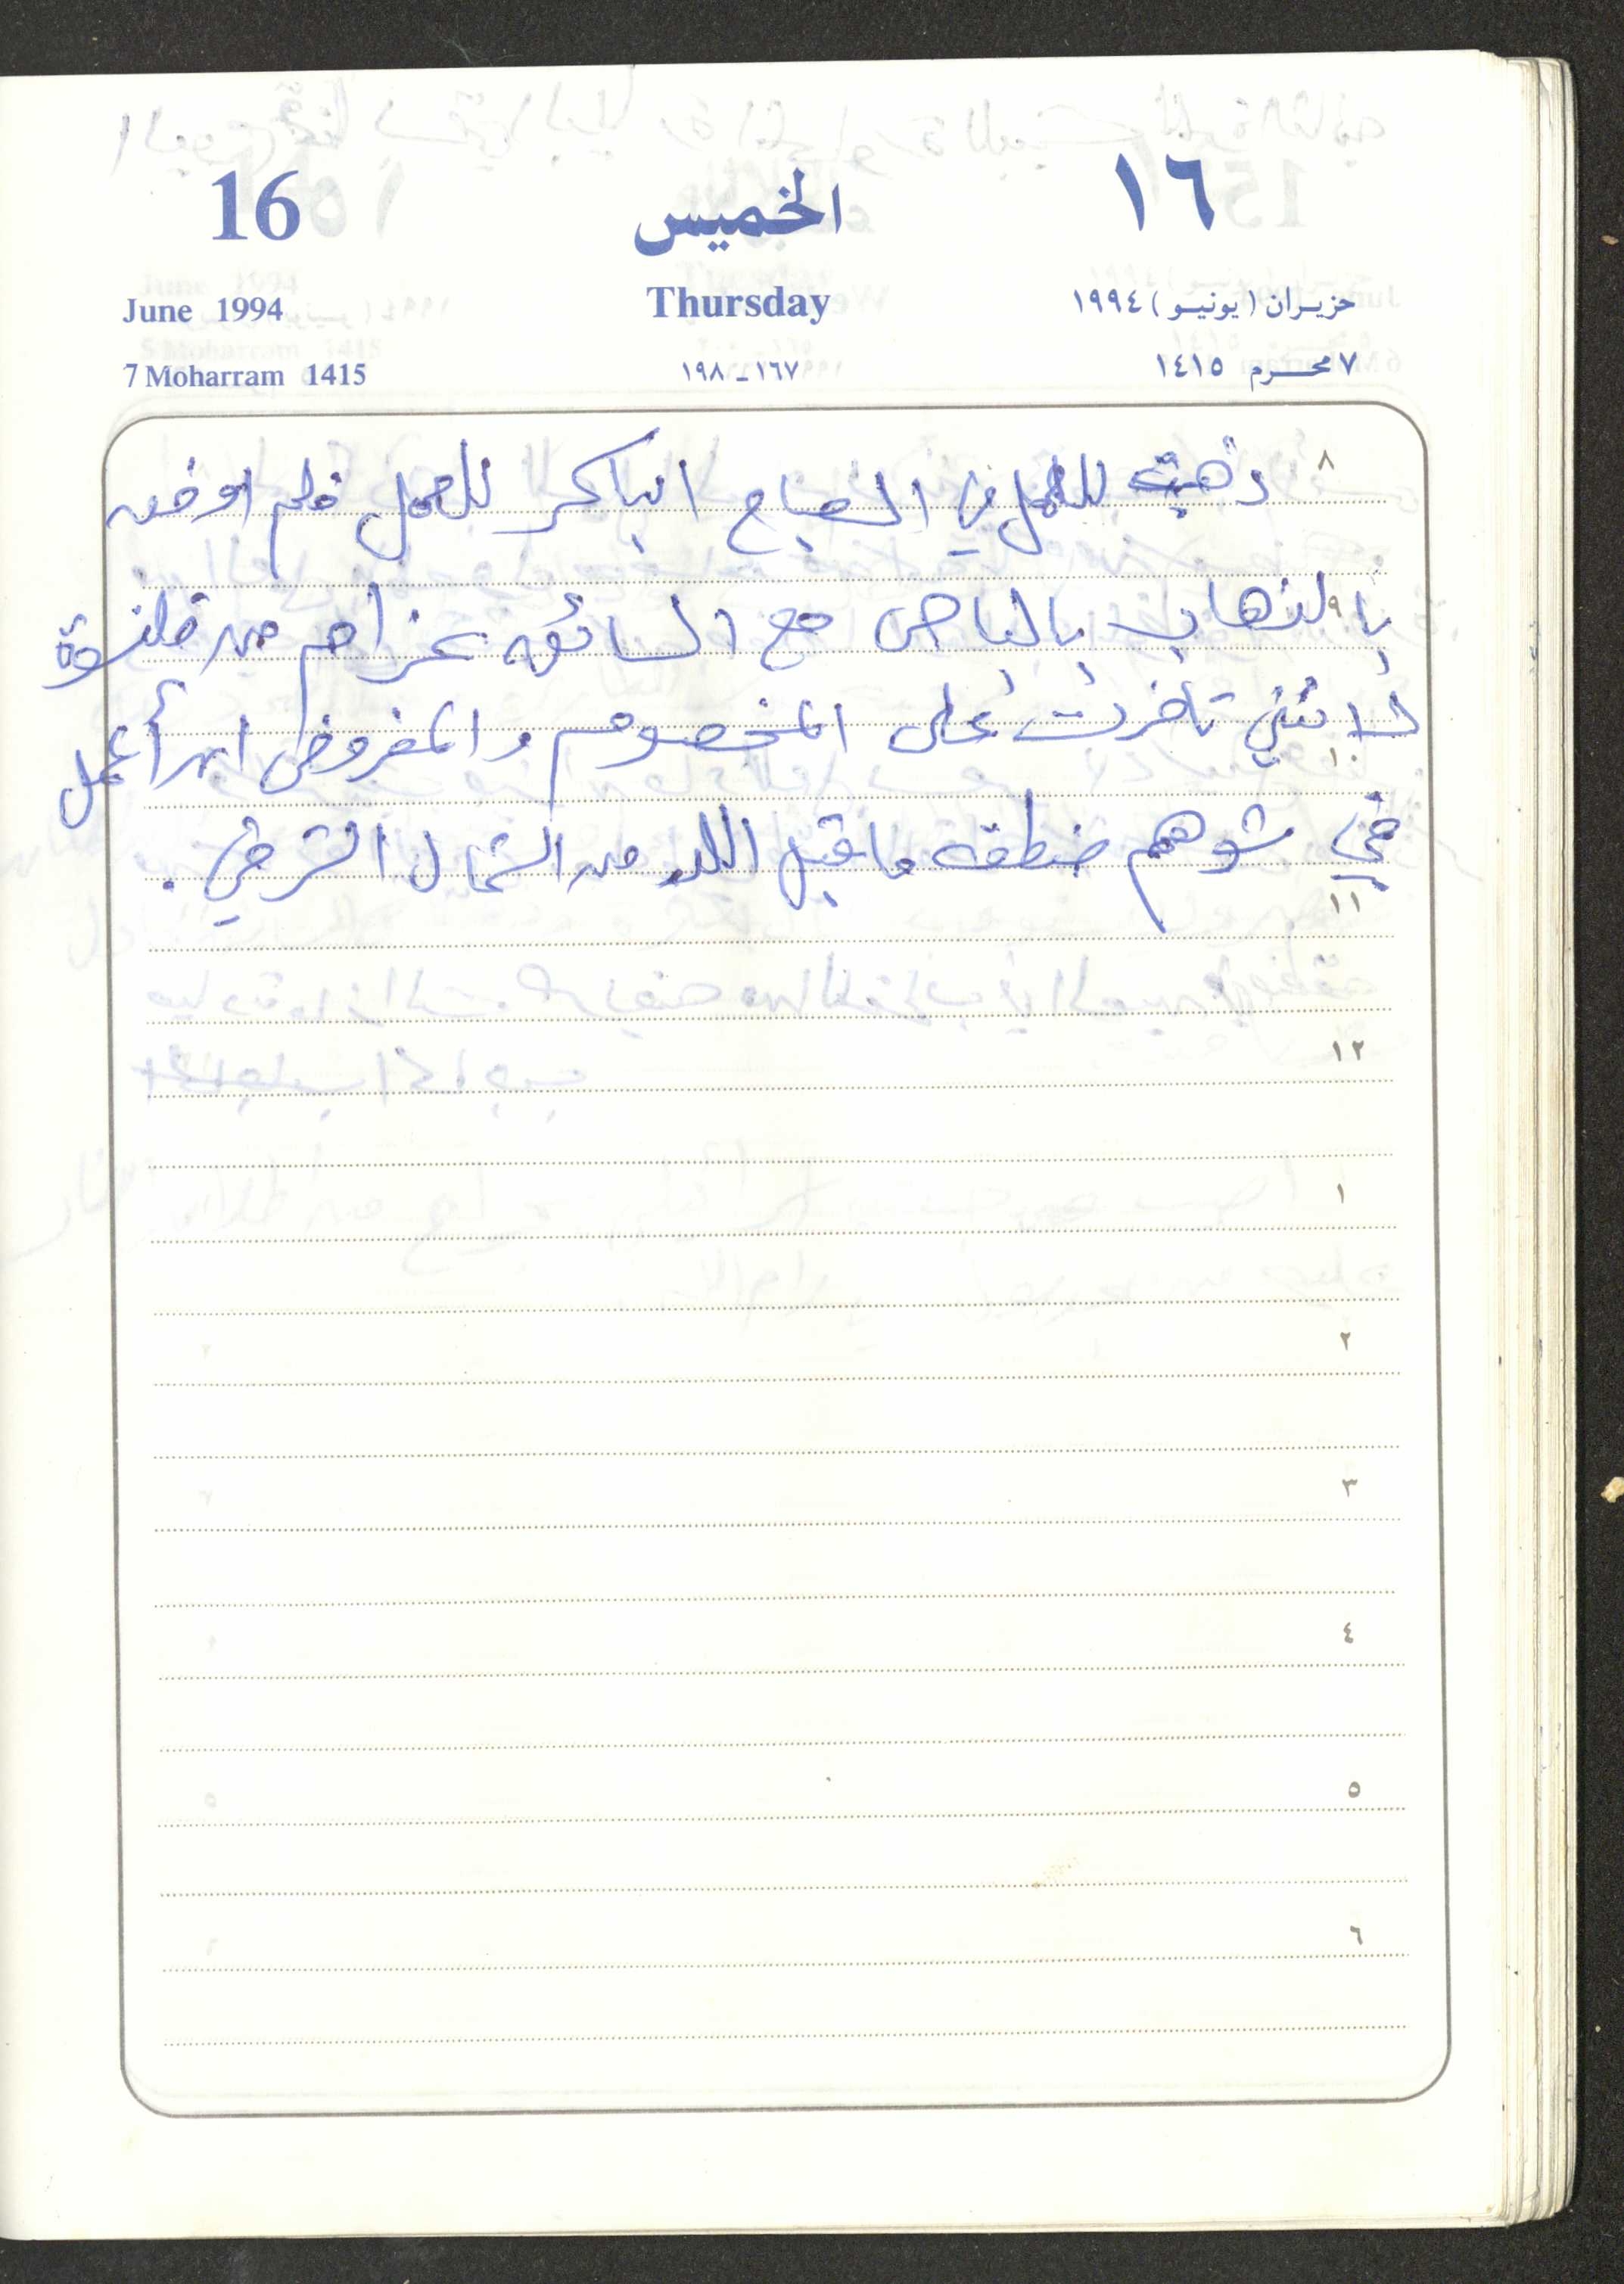 16 الخميس ١٦
June 1994 Thursday حزيران (يونيو) ١٩٩٤
7 Moharram 1415 ١٦٧-١٩٨ ٧ محرم ١٤١٥
٨
ذهبت للعمل في الصباح الباكر للعمل فلم اوفق
٩
بالذهاب بالباص مع السائق عزام من قلنسوة
لأنني تأخرت على المخصوم والمفروض ان أعمل
١٠
في شوهم منطقة ما قبل اللد من الشمال الشرقي .
١١
١٢
١
٢
٣
٤
٥
٦